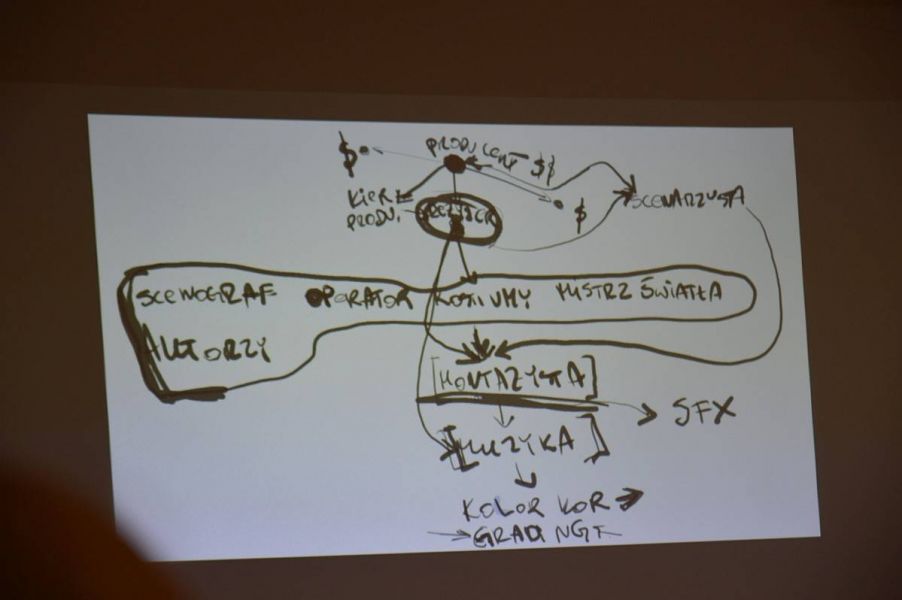 $
PRODUCENT $$
KIER
PRODU.
REŻYSER
$
SCENARZYSTA
SCENOGRAF OPERATOR KOSTIUMY MISTRZ ŚWIATŁA
AUTORZY
[MONTAŻYSTA]
SFX
[MUZYKA]
KOLOR KOR
GRADING